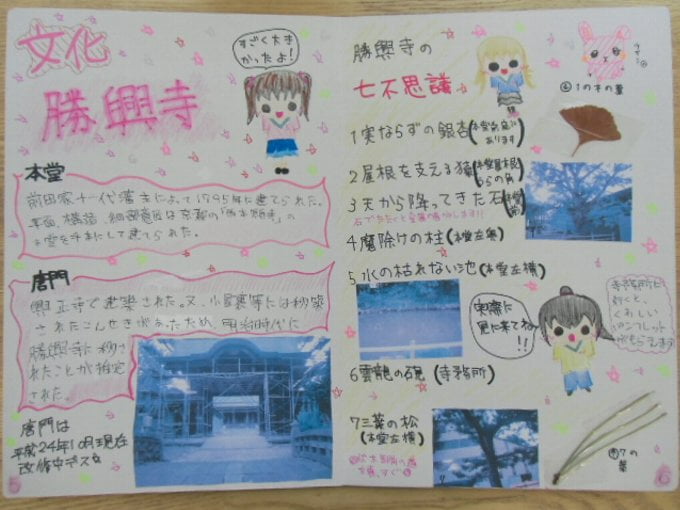 文化
勝興寺
すごく大き
かったよ!
本堂
前田家十一代藩主によって1795年に建てられた。
平面、構造、細部意匠は京都の「西本願寺」の
本堂を手本にして建てられた。
唐門
興正寺で建築された。又、小屋裏等には移築
されたこんせきがあったため、明治時代に
勝興寺に移さ
れたことが推定
された。
唐門は
平成24年10月現在
改修中デス
勝興寺の
七不思議
1実ならずの銀杏(本堂前庭に
あります)
2屋根を支える猿(本堂屋根
うらの角)
3天から降ってきた石(本堂
前)
石でたたくと金属の音がします!!
4魔除けの柱(本堂左奥)
5水の枯れない池(本堂左横)
実際に
見に来てね!!
寺務所に
行くと、
くわしい
パンフレット
がもらえます
6雲龍の硯(寺務所)
7三葉の松
(本堂左横)
1の木の葉
7の
葉